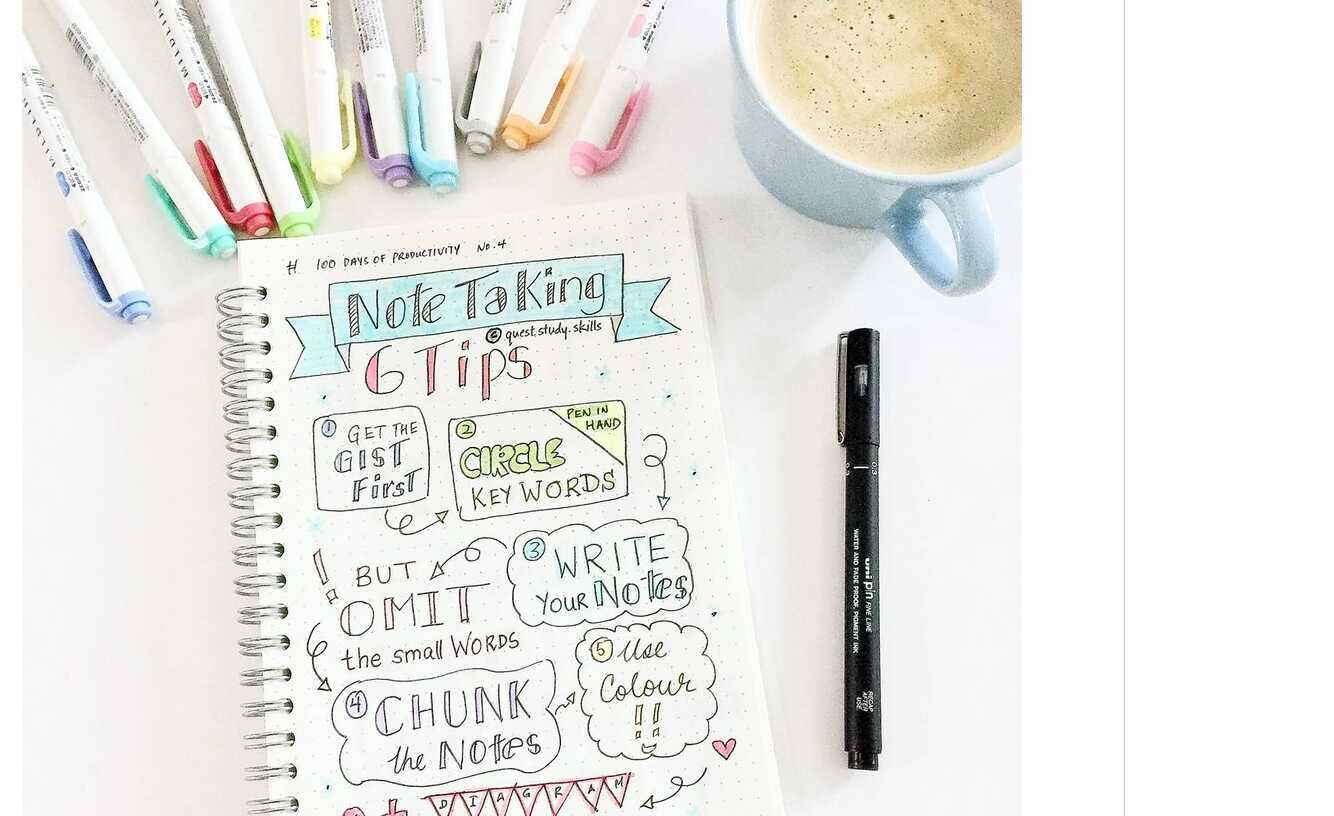 # 100 DAYS OF PRODUCTIVITY No. 4
Note Taking
© quest.study.skills
6 Tips
1 GET THE
GIST
First
2 PEN IN
HAND
CIRCLE
KEY WORDS
3 WRITE
Your Notes
! BUT
OMIT
the small WORDS
4 CHUNK
the Notes
5 Use
Colour
!!
DIAGRAM
MILDLINER
0.3
0.3
uni pin FINE LINE
WATER AND FADE PROOF, PIGMENT INK
RECAP
AFTER
USE